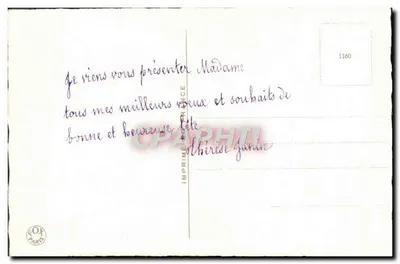 Je viens vous présenter Madame
tous mes meilleurs vœux et souhaits de
bonne et heureuse fête
Thérèse
1160
IMPRIMÉ EN FRANCE
CPAPHIL
FOX
PARIS